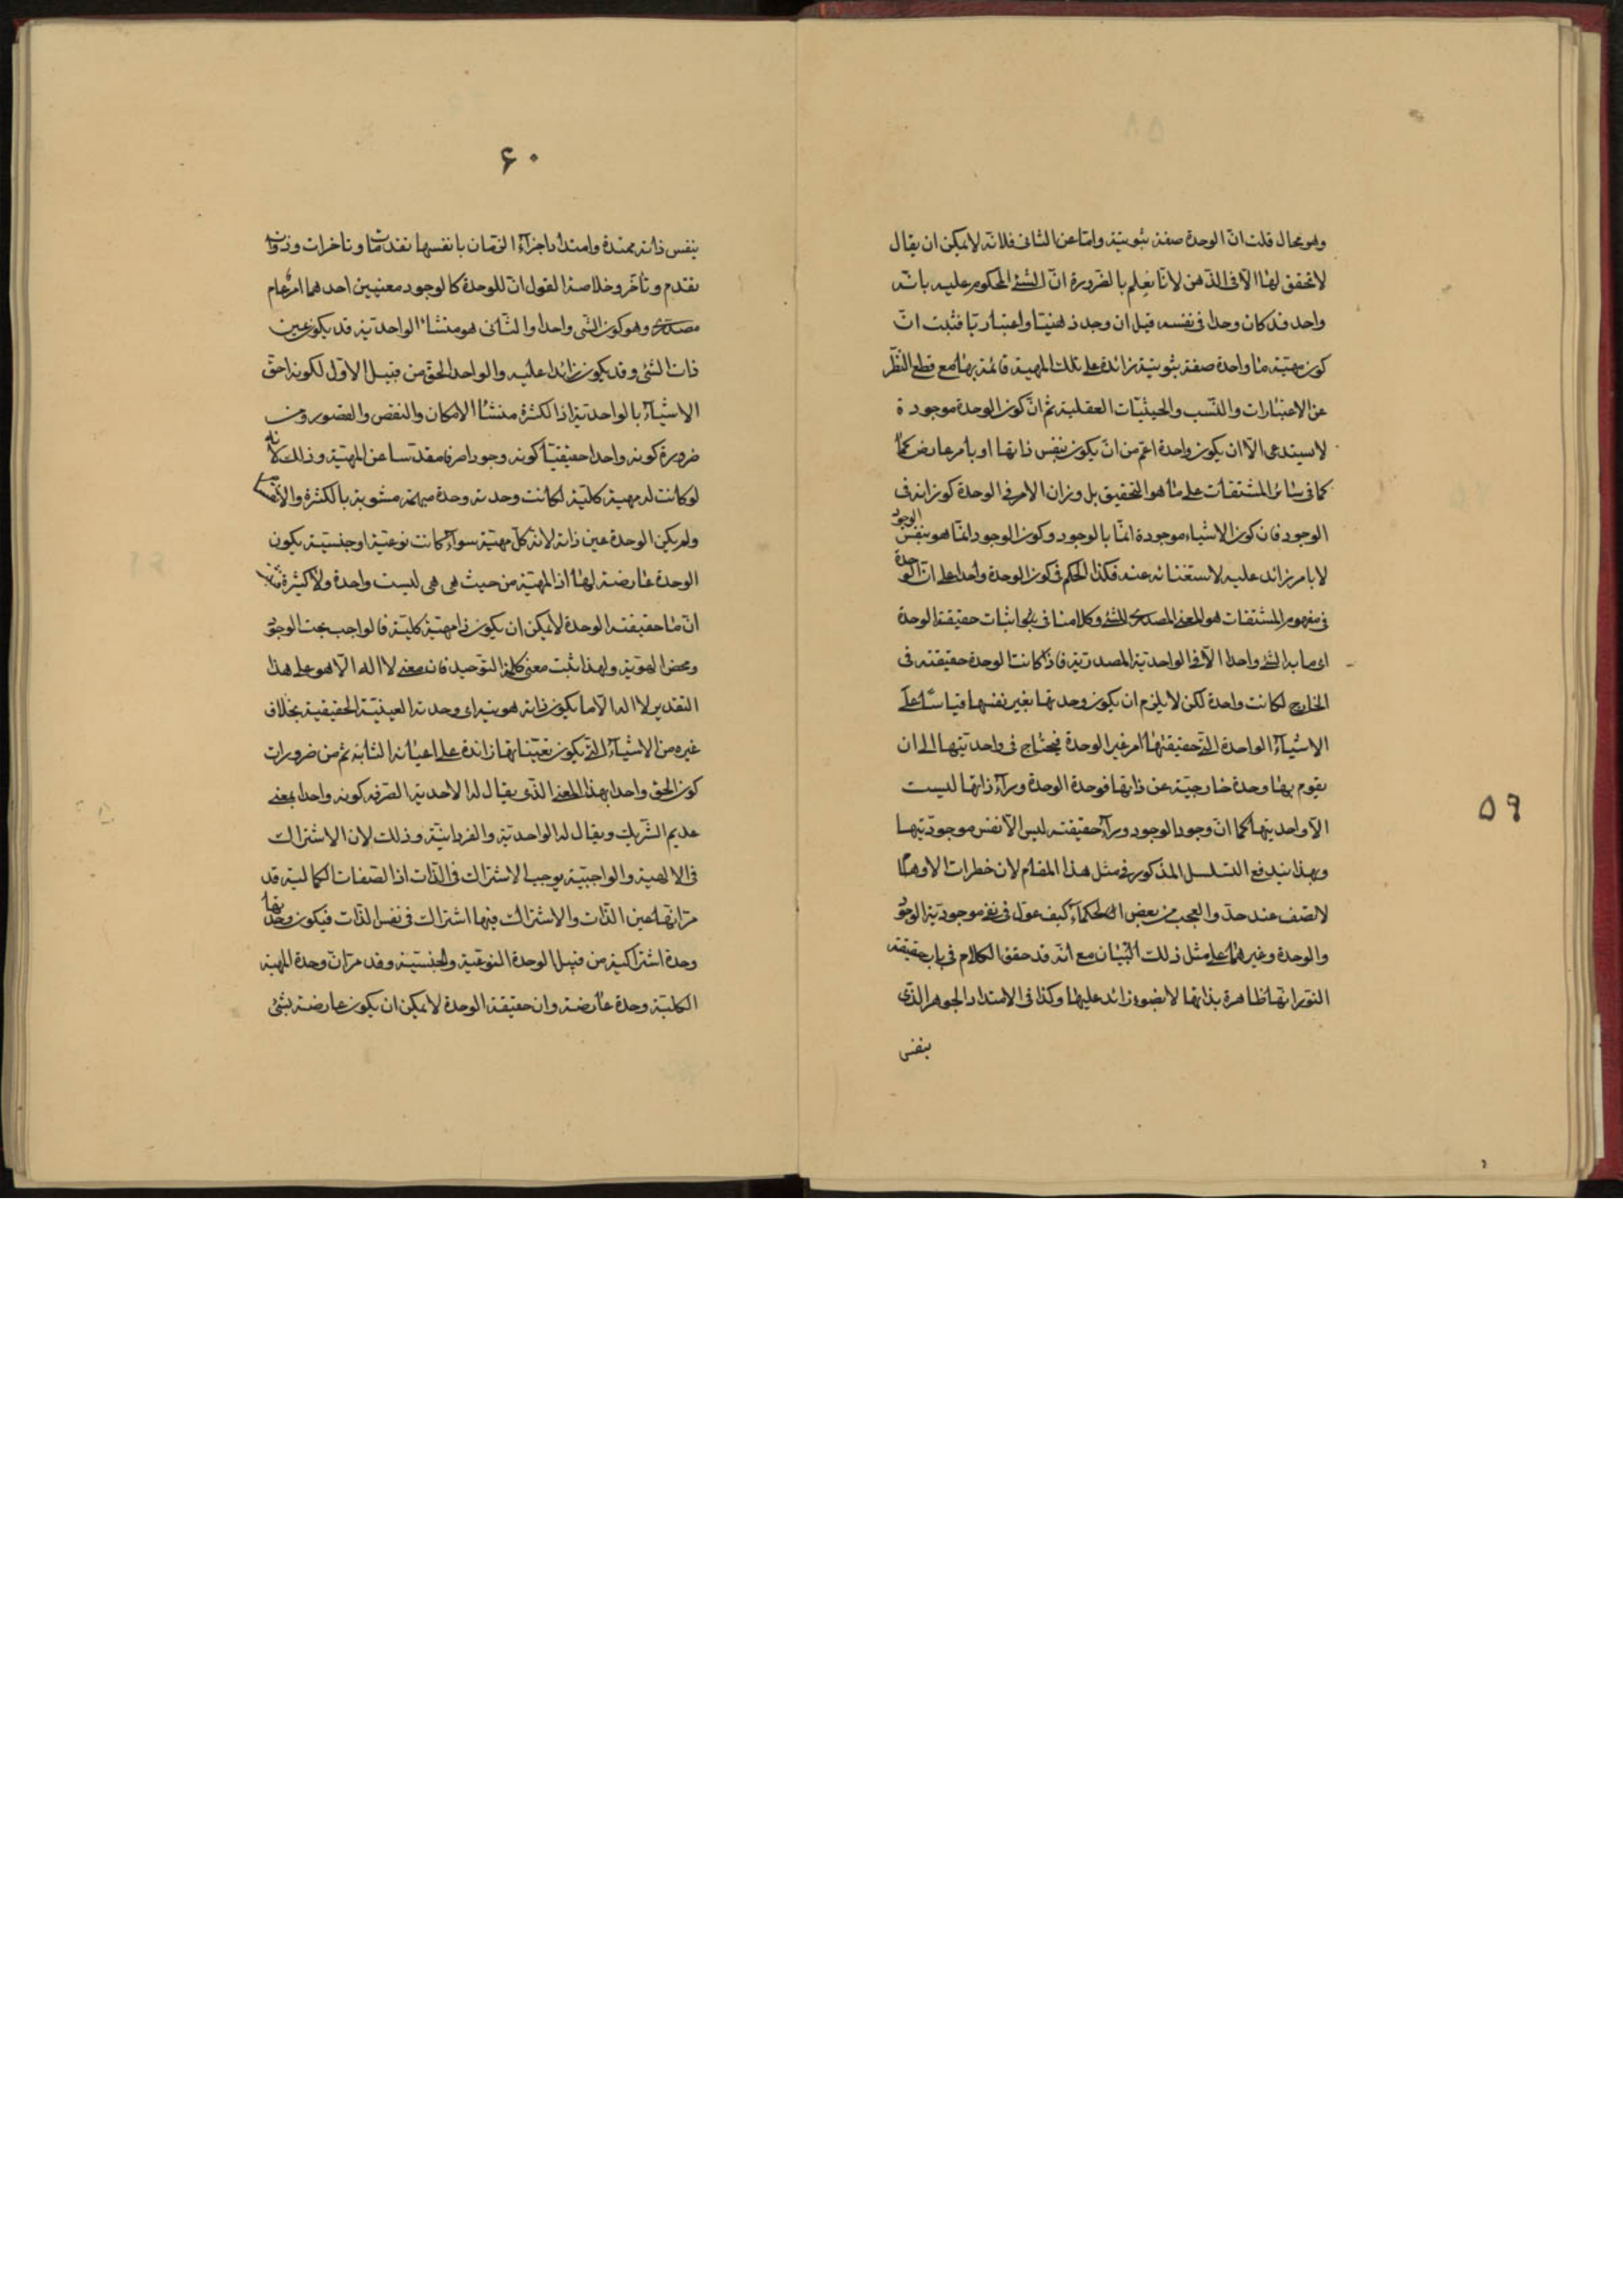 ۵۹
وهو محال قلت انّ الوحدة صفة ثبوتيّة وامّا عن الثانى فلانّه لا يمكن ان يقال
لا تحقق لها الّا فى الذّهن لانّا نعلم بالضّرورة انّ الشئ المحكوم عليه بانّه
واحد قد كان واحدا فى نفسه قبل ان وجد ذهنيّا واعتباريّا فثبت انّ
كون مهيّة ما واحدة صفة ثبوتيّة زائدة على تلك المهية قائمة بها مع قطع النّظر
عن الاعتبارات والنّسب والحيثيّات العقلية ثم انّ كون الوحدة موجودة
لا يستدعى الّا ان يكون واحدة اعمّ من انّ يكون بنفس ذاتها او بأمر عارض كما
كما فى سائر المشتقات على ما هو التحقيق بل وزان الامر فى الوحدة كوزانه فى
الوجود فان كون الاشياء موجودة انمّا بالوجود وكون الوجود انمّا هو بنفس الوجود
لا بامر زائد عليه لاستغنائه عنه فكذا الحكم فى كون الوحدة واحدا على انّ الوحدة
فى مفهوم المشتقات هو المعنى المصدرى للشئ وكلامنا فى اثبات حقيقة الوحدة
اى ما به الشئ واحدا الّا فى الواحديّة المصدريّة فاذا كانت الوحدة حقيقته فى
الخارج لكانت واحدة لكن لا يلزم ان يكون وحدتها بغير نفسها قياسا على
الاشيآء الواحدة الّتى حقيقتها امر غير الوحدة فيحتاج فى واحديّتها الى ان
يقوم بها وحدة خارجيّة عن ذاتها فوحدة الوحدة ورآء ذاتها ليست
الّا واحديتها كما انّ وجود الوجود ورآء حقيقته ليس الّا نفس موجوديّتها
وبهذا يندفع التسلسل المذكور فى مثل هذا المقام لان خطرات الاوهام
لا تقف عند حدّ والعجب من بعض الحكمآء كيف عوّل فى نفى موجوديّة الوجود
والوحدة وغيرهما على مثل ذلك البيان مع انّه قد حقق الكلام فى باب حقيقة
النّور انّها ظاهرة بذاتها لا بضوء زائد عليها وكذا فى الامتداد الجوهر الذّى
بنفس
۶۰
بنفس ذاته ممتدة وامتداد اجزآء الزّمان بانفسها تقدمات وتاخرات وذوات
تقدم وتأخّر وخلاصة القول انّ للوحدة كالوجود معنيين احدهما امر عام
مصدرى وهو كون الشى واحدا والثّانى هو منشا الواحديّة قد يكون عين
ذات الشئ وقد يكون زائدا عليه والواحد الحقّ من قبيل الاوّل لكونه احقّ
الاشيآء بالواحديّة اذ الكثرة منشأ الامكان والنقص والقصور ومن
ضرورة كونه واحدا حقيقيّا كونه وجودا صرفا مقدّسا عن المهيّة وذلك لانّه
لو كانت له مهية كليّة لكانت وحدته وحدة مبهمة مشوبة بالكثرة والانقسام
ولم يكن الوحدة عين ذاته لانّ كلّ مهيّة سوآء كانت نوعيّة او جنسيّة يكون
الوحدة عارضة لها اذ المهيّة من حيث هى هى ليست واحدة ولا كثيرة
انّ ما حقيقته الوحدة لا يمكن ان يكون ذا مهيّة كليّة فالواجب بحت الوجود
ومحض الهويّة وبهذا يثبت معنى كلمة التوّحيد فان معنى لا اله الّا هو على هذا
التقدير لا اله الّا ما يكون ذاته هويته اى وحدته العينيّة الحقيقية بخلاف
غيره من الاشيآء الّتى يكون تعيّناتها زائدة على اعيانه الثابته ثم من ضرورات
كون الحق واحدا بهذا المعنى الذّى يقال له الاحدية الصّرفة كونه واحدا بمعنى
عديم الشّريك ويقال له الواحديّة والفردانيّة وذلك لان الاشتراك
فى الالهية والواجبيّة يوجب الاشتراك فى الذّات اذ الصّفات الكمالية قد
مرّ انّها عين الذّات والاشتراك فيها اشتراك فى نفس الذّات فيكون وحدتها
وحدة اشتراكية من قبيل الوحدة النوعّية والجنسيّة وقد مرّ انّ وحدة المهية
الكليّة وحدة عارضة وان حقيقة الوحدة لا يمكن ان يكون عارضة بشئ